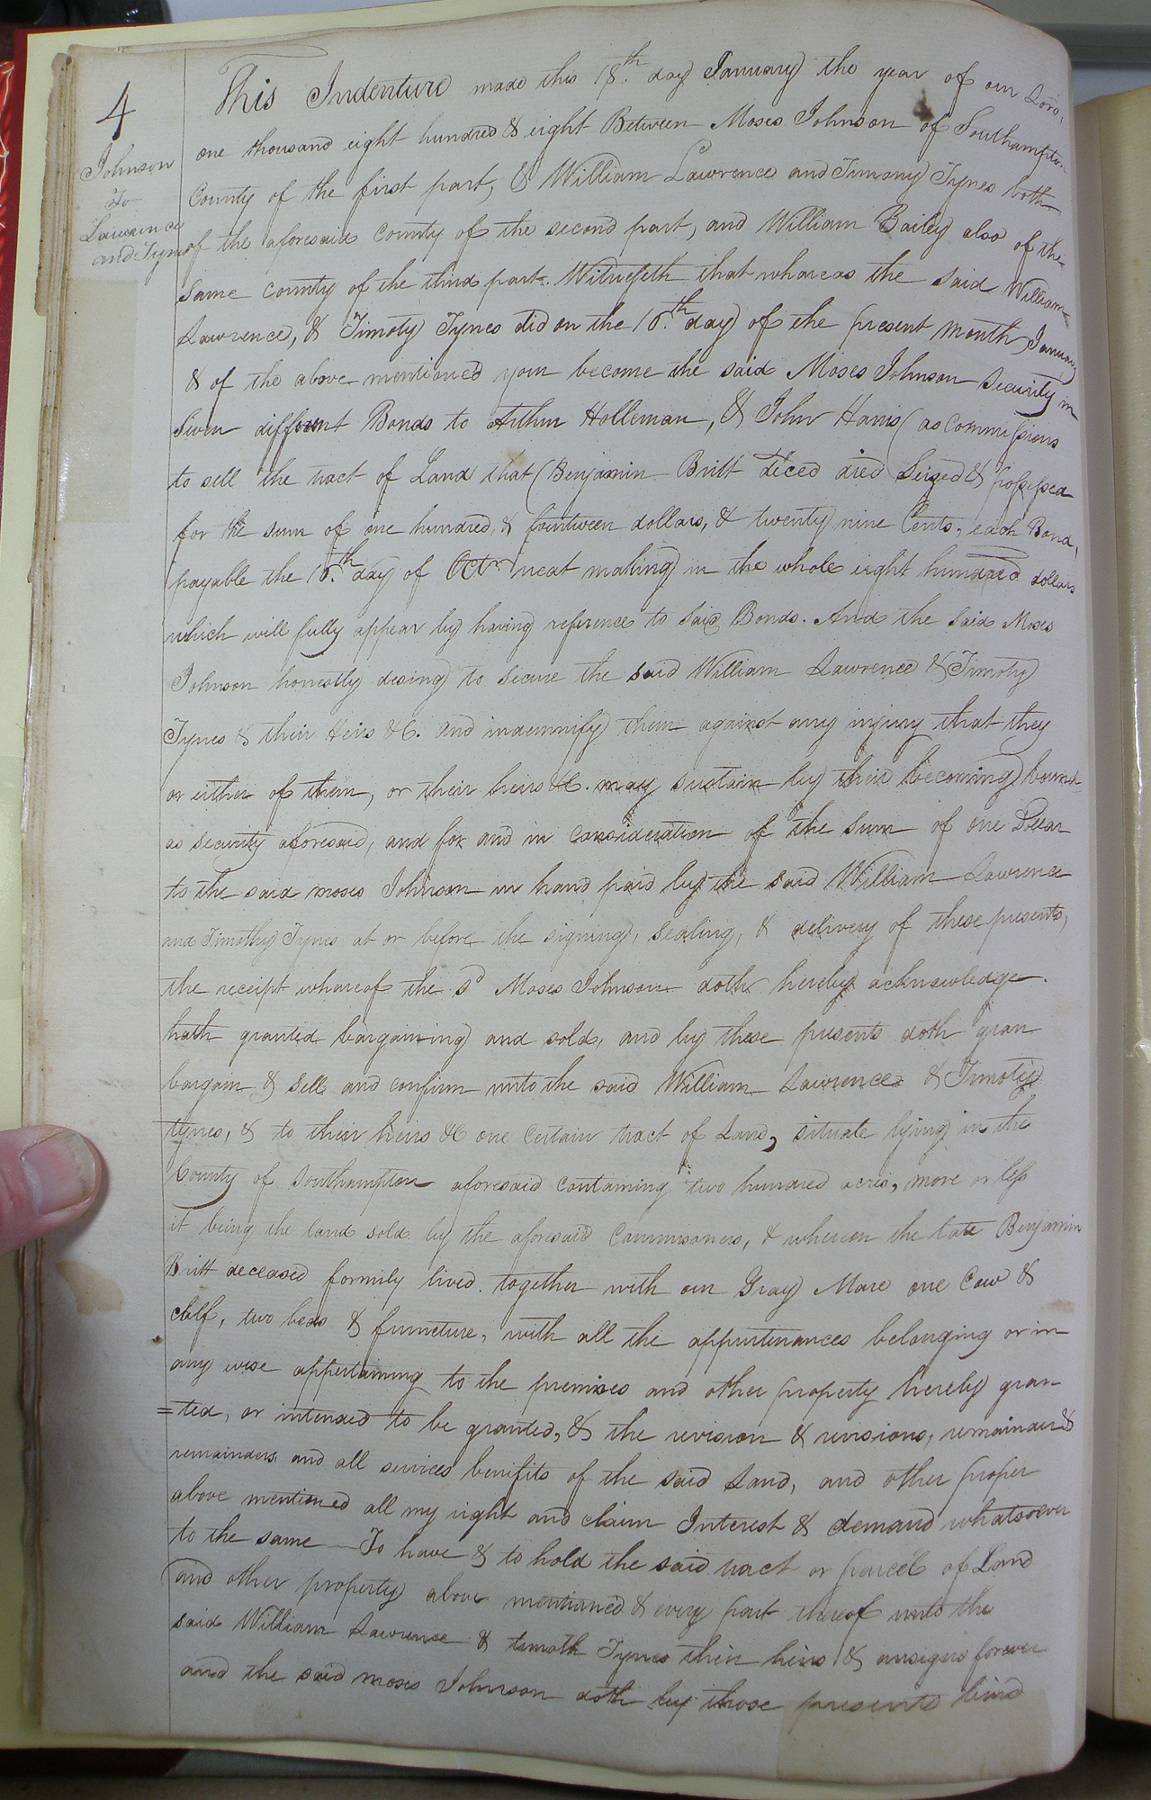 4
Johnson
to
Lawrence
and Tynes
This Indenture made this 18.th day January the year of our Lord,
one thousand eight hundred & eight Between Moses Johnson of Southampton
County of the first part, & William Lawrence and Timony Tynes both
of the aforesaid County of the second part, and William Bailey also of the
same County of the third part. Witnesseth that whareas the said William
Lawrence, & Timoty Tynes did on the 16.th day of the present month January
& of the above mentioned year become the said Moses Johnson Security in
Seven different Bonds to Arthur Holleman, & John Harris (as Commissions
to sell the tract of Land that (Benjamin Britt deced died Seized & possessed
for the sum of one hundred, & fourtween dollars, & twenty nine Cents, each Bond,
payable the 16.th day of Octr next making in the whole eight hundred dollars
which will fully appear by having reference to said Bonds. And the said Moses
Johnson honestly desing to secure the said William Lawrence & Timoty
Tynes & their Heirs &C. and indemnify them against any injury that they
or either of them, or their heirs &C. may sustain by their becoming bound
as security aforesaid, and for and in Consideration of the sum of one Dollar
to the said moses Johnson in hand paid by the said William Lawrence
and Timothy Tynes at or before the signing, sealing, & delivery of these presents,
the receipt whareof the sd Moses Johnson doth hereby acknowledge.
hath granted bargaining and sold, and by these presents doth gran
bargain & Sell and confirm unto the said William Lawrence & Timoty
tynes, & to their heirs &C one Certain tract of Land, situate lying in the
County of Southampton aforesaid Containing two hundred acres, more or less
it being the land sold by the aforesaid Commisoners, & whereon the late Benjamin
Britt deceased formily lived. together with our Gray Mare one Cow &
Calf, two beds & furneture, with all the appurtenances belonging or in
any wise appertaining to the premises and other property hereby gran
=ted, or intensed to be granted, & the revision & revisions, remainder &
remainders and all services benifits of the said Land, and other proper
above mentioned all my right and claim Interest & demand whatsoever
to the same To have & to hold the said tract or parcel of Land
and other property above mentioned & every part thereof unto the
said William Lawrence & timoth Tynes their heirs & ansigns forever
and the said moses Johnson doth by those presents bind